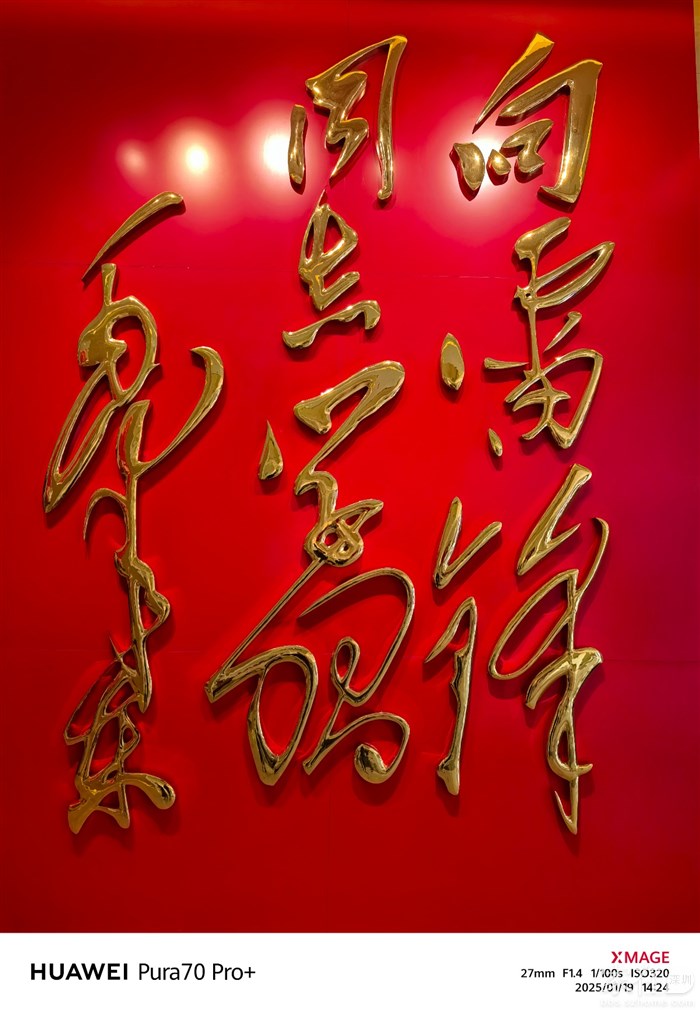 向雷锋
同志学习
毛泽东
HUAWEI Pura70 Pro+
XMAGE
27mm F1.4 1/100s ISO320
2025/01/19 14:24